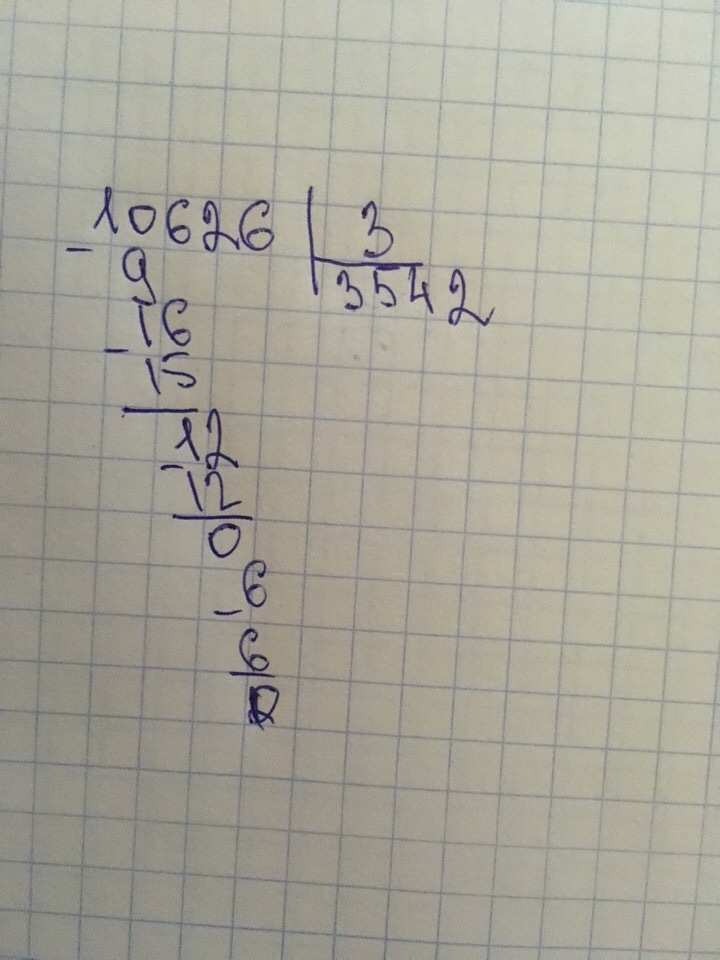 10626 | 3
- 9 3542
16
- 15
12
- 12
0
6
- 6
0